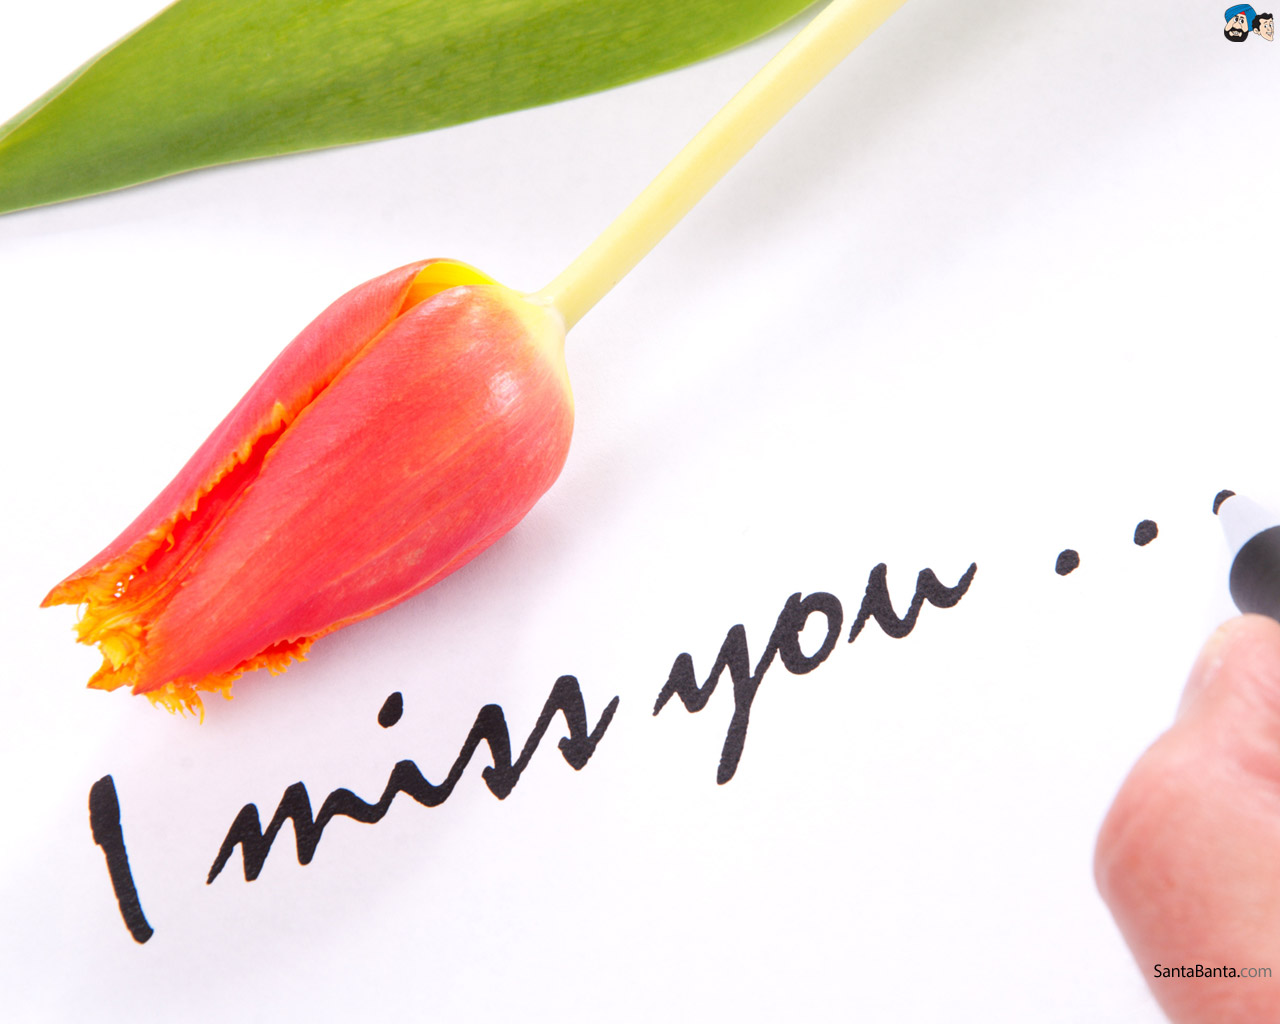 I miss you . . .
SantaBanta.com